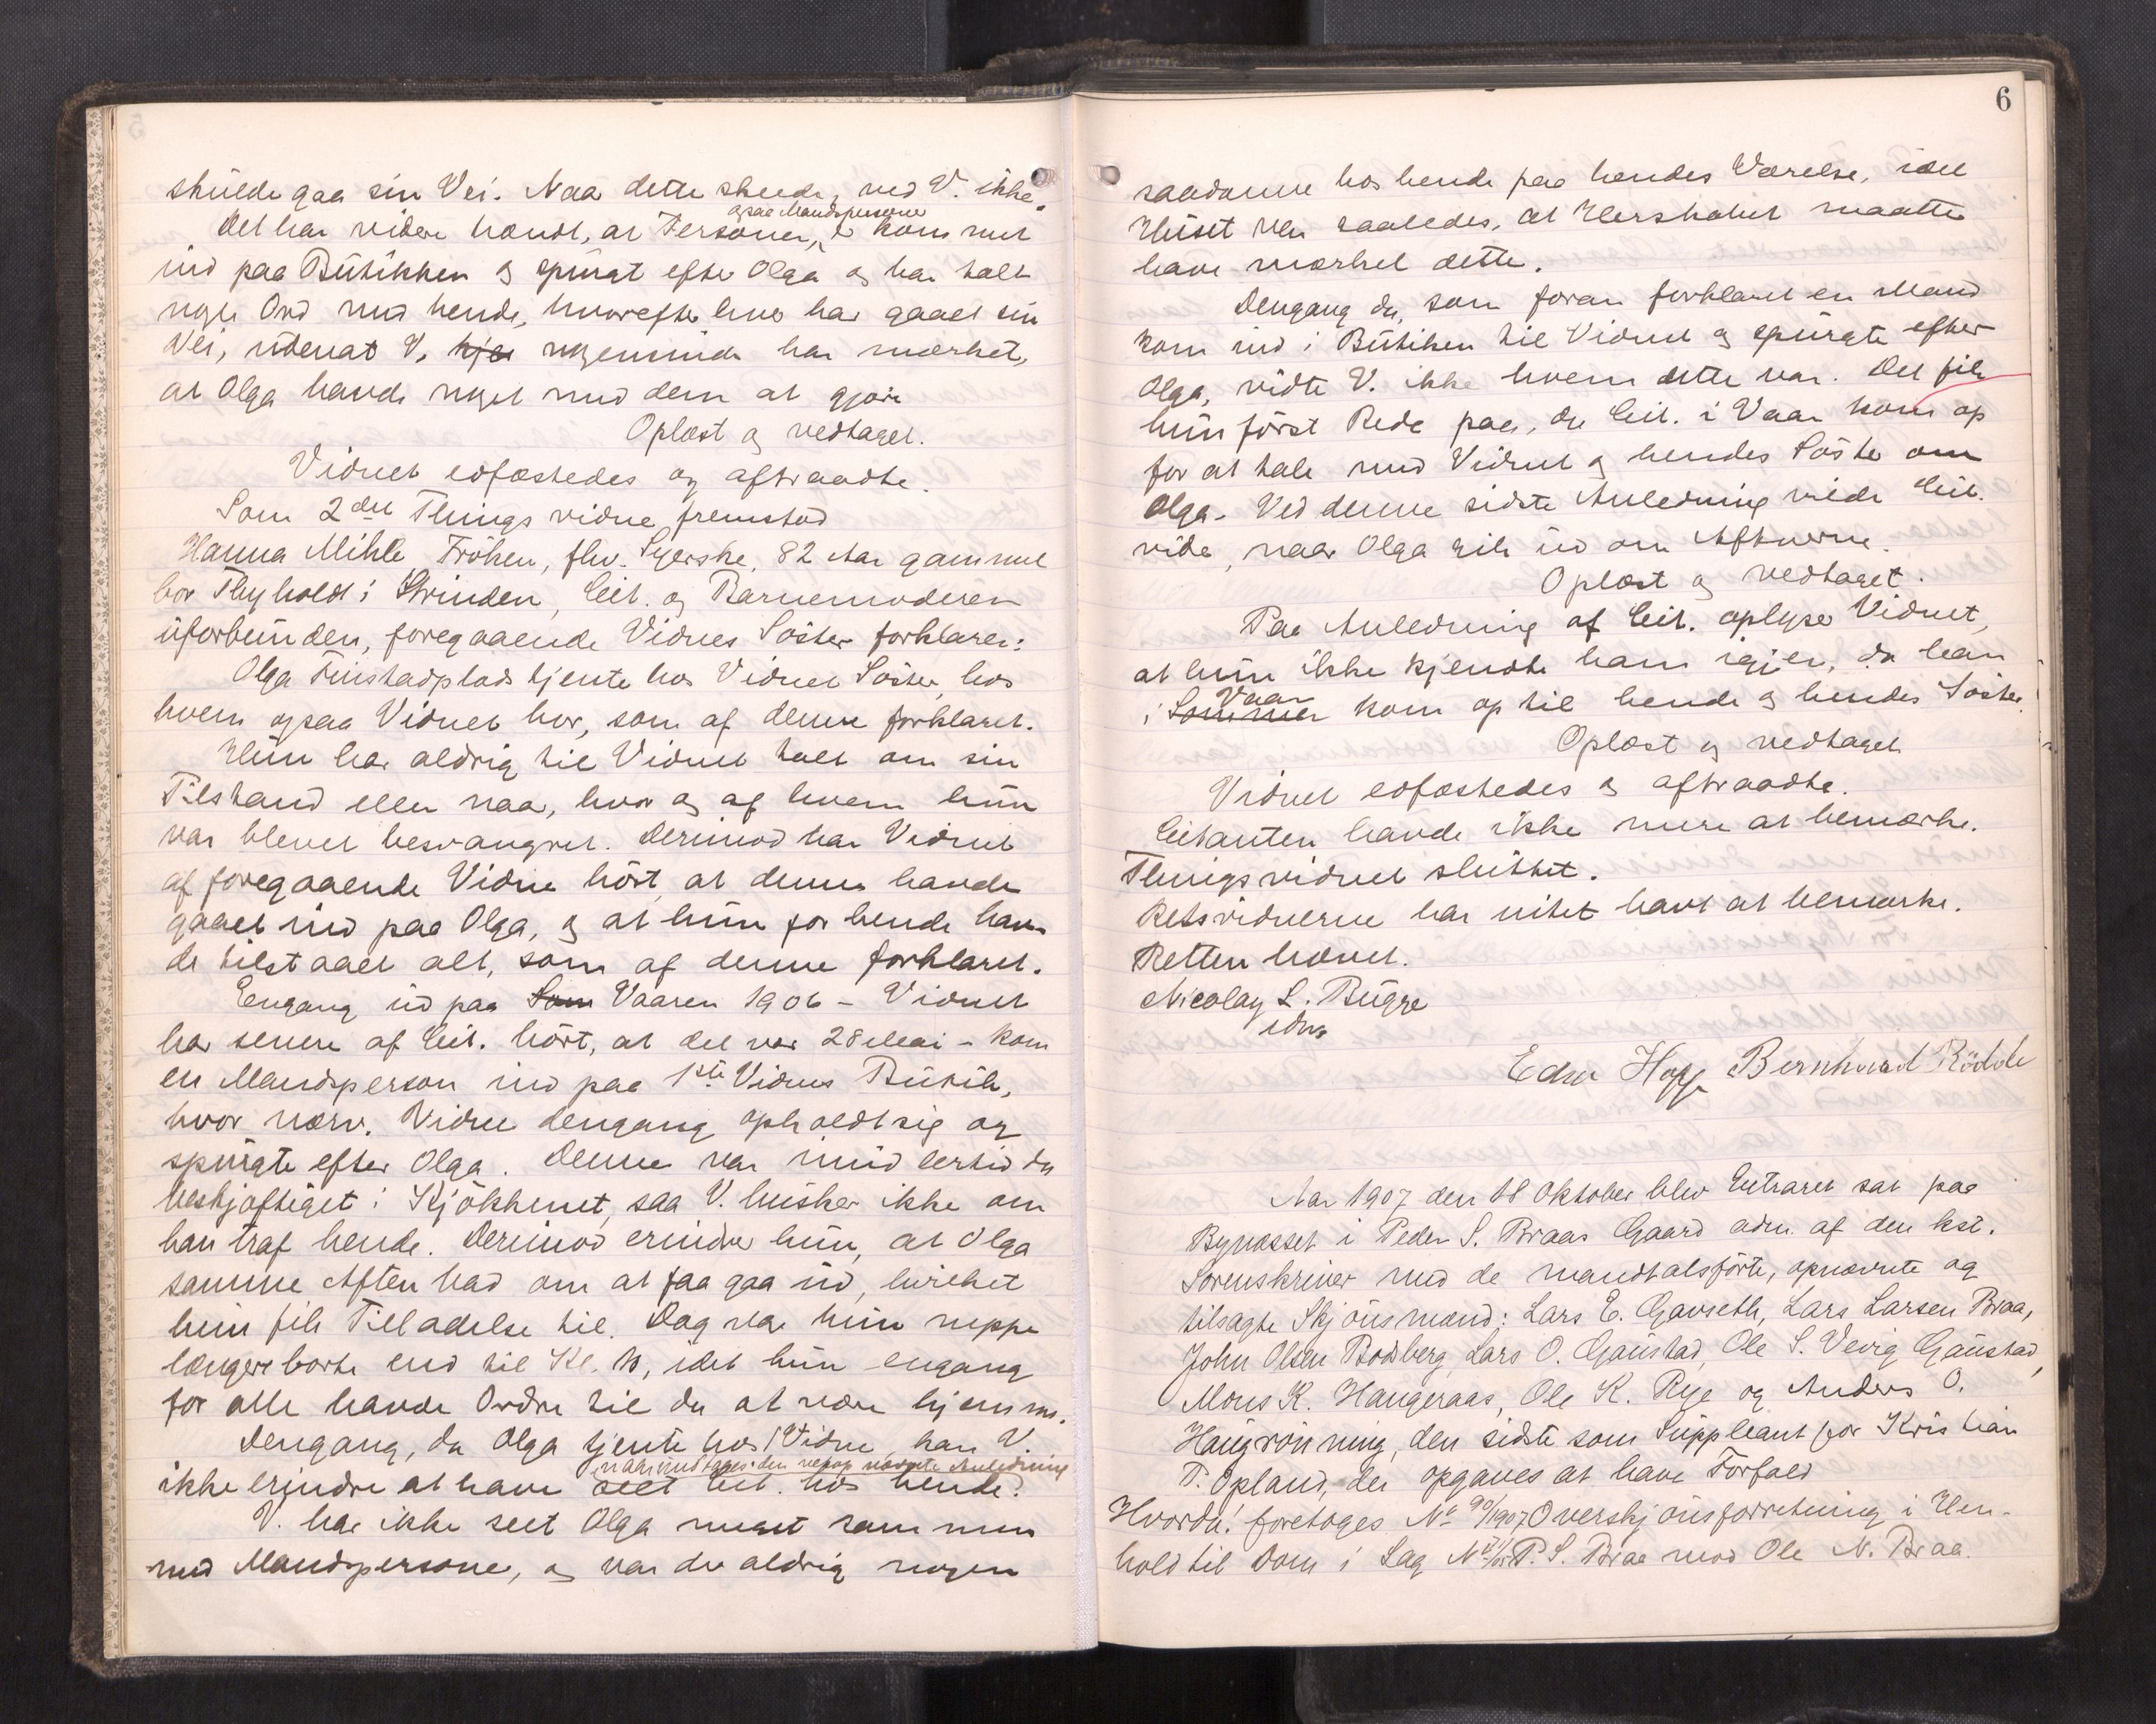 skulde gaa sin Vei. Naa dette skeede, ved V. ikke.
ogsaa Mandspersoner
Det har videre hændt, at Personer, er kommet
ind paa Butikken og spurgt efter Olga og har talt
nogle Ord med hende, hvorefter hver har gaaet sin
Vei, udenat V. nogensinde har mærket,
at Olga havde noget med dem at gjøre
Oplæst og vedtaget.
Vidnet edfæstedes og aftraadte.
Som 2det Thingsvidne fremstod
Hanna Mihle, Frøken, fhv. Syerske, 82 Aar gammel
bor Thyholdt i Strinden, Cit. og Barnemoderen
uforbunden, foregaaende Vidnes Søster forklarer:
Olga Finstadplads tjente hos Vidnets Søster, hos
hvem ogsaa Vidnet bor, som af denne forklaret.
Hun har aldrig til Vidnet talt om sin
Tilstand eller naa, hvor og af hvem hun
var blevet besvangret. Derimod har Vidnet
af foregaaende Vidne hørt, at denne havde
gaaet ind paa Olga, og at hun for hende hav-
de tilstaaet alt, som af denne forklaret.
Engang ud paa Som Vaaren 1906 - Vidnet
har senere af Cit. hørt, at det var 28 Mai - kom
en Mandsperson ind paa 1ste Vidnes Butik,
hvor nærv. Vidne dengang opholdt sig og
spurgte efter Olga. Denne var imidlertid da
beskjæftiget i Kjøkkenet, saa V. husker ikke om
han traf hende. Derimod erindrer hun, at Olga
samme Aften bad om at faa gaa ud, hvilket
hun fik Tilladelse til. Dog var hun neppe
længere borte end til Kl. 10, idet hun engang
for alle havde Ordre til da at være hjemme.
Dengang, da Olga tjente hos 1 Vidne, kan V.
naar undtages den netop nævnte Anledning
ikke erindre at have seet Cit. hos hende.
V. har ikke seet Olga meget sammen
med Mandspersone, og var der aldrig nogen
6
saadanne hos hende paa hendes Værelse, idet
Huset var saaledes, at Herskabet maatte
have mærket dette.
Dengang da, som foran forklaret en Mand
kom ind i Butiken til Vidnet og spurgte efter
Olga, vidte V. ikke hvem dette var. Det fik
hun först Rede paa, da Cit. i Vaar kom op
for at tale med Vidnet og hendes Søster om
Olga. Ved denne sidste Anledning vilde Cit.
vide, naar Olga gik ud om Aftnerne.
Oplæst og vedtaget.
Paa Anledning af Cit. oplyser Vidnet,
at hun ikke kjendte ham igjen, da han
Vaar
i Sommer kom op til hende og hendes Søster.
Oplæst og vedtaget
Vidnet edfæstedes og aftraadte.
Citanten havde ikke mere at bemærke.
Thingsvidnet sluttet.
Retsvidnerne har intet havt at bemærke.
Retten hævet.
Nicolay L. Bugge
Bernhard Rödde
Aar 1907 den 18 Oktober blev Extraret sat paa
Bynesset i Peder S. Braas Gaard adm. af den kst.
Sorenskriver med de mandtalsførte, opnævnte og
tilsagte Skjønsmænd: Lars E. Gavseth, Lars Larsen Braa,
John Olsen Bodsberg, Lars O. Gaustad, Ole S. Gaustad,
Mons K. Haugeraas, Ole K. Rye og Anders O.
Haugrønning, den sidste som Suppleant for Kristian
P. Opland, der opgaves at have Forfald
Hvorda: foretoges No 90/1907 Overskjønsforretning i Hen-
hold til Dom i Sag No P. S. Braa mod Ole N. Braa.